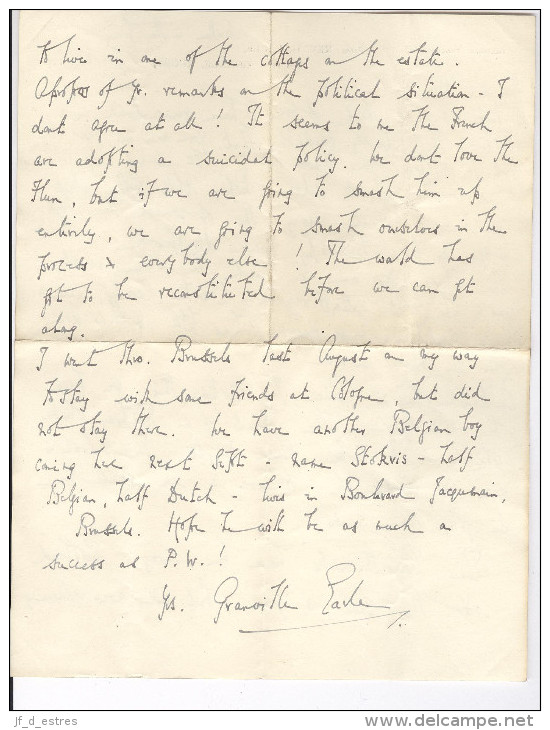 to live in one of the cottages on the estate.
Apropos of yr. remarks on the political situation - I
dont agree at all! It seems to me the French
are adopting a suicidal policy. We dont love the
Hun, but if we are going to smash him up
entirely, we are going to smash ourselves in the
process & everybody else! The world has
got to be reconstituted before we can get
along.
I went thro. Brussels last August on my way
to stay with some friends at Cologne, but did
not stay there. We have another Belgian boy
coming here next Sept - name Stokvis - half
Belgian, half Dutch - lives in Boulevard Jacqmain,
Brussels. Hope he will be as much a
success as P.W.!
Yrs. Granville Earle
jf_d_estres
delcampe.net